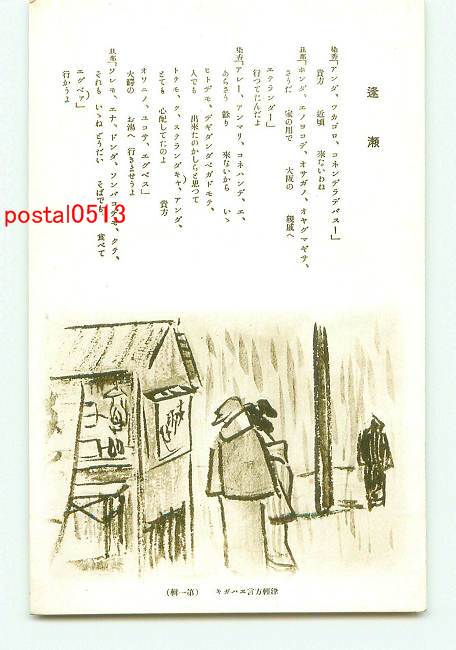 逢瀬
染香「アンダ、ワカゴロ、コネンデラデバスー」
貴方 近頃 來ないわね
旦那「ホンダ、エノヨコデ、オサガノ、オヤグマギサ、
さうだ 家の用で 大阪の 親戚へ
エテランダー」
行つてたんだよ
染香「アレー、アンマリ、コネハンデ、エ、
あらさう 餘り 來ないから いゝ
ヒトデモ、デギダンダベガドモテ、
人でも 出來たのかしらと思つて
トテモ、ク、スクランダギャ、アンダ、
とても 心配してたのよ 貴方
オワニノ、ユコサ、エグベス」
大鰐の お湯へ 行きませうよ
旦那「ソレモ、エナ、ドンダ、ソンバコデモ、クテ、
それも いゝね どうだい そばでも 食べて
エグベァ」
行かうよ
postal0513
津輕方言エハガキ (第一輯)